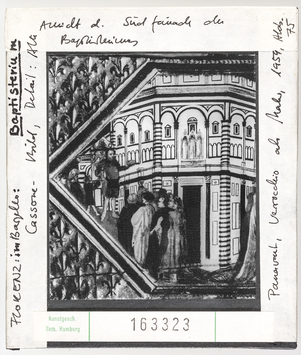 FLORENZ: im Bargello: Baptisterium
Cassone-Bild, Detail: Alte
Ansicht d. Südfassade des
Baptisteriums
Passavant, Verrocchio als Maler, 1959, Abb.
75
Kunstgesch.
Sem. Hamburg
163323